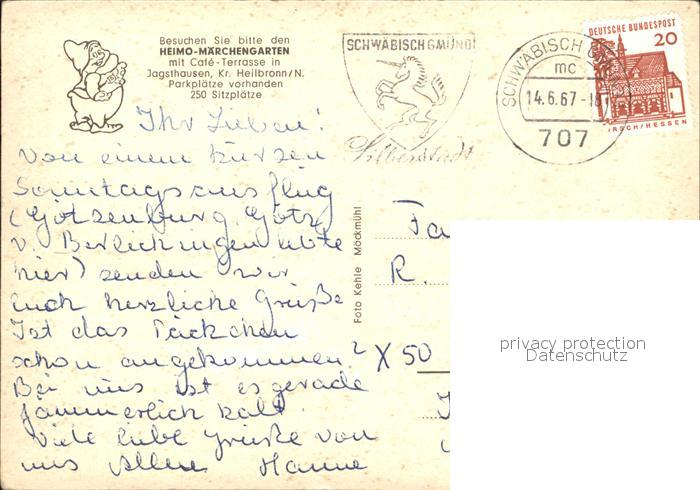 Besuchen Sie bitte den
HEIMO-MÄRCHENGARTEN
mit Café-Terrasse in
Jagsthausen, Kr. Heilbronn/N.
Parkplätze vorhanden
250 Sitzplätze
SCHWÄBISCH GMÜND
Silberstadt
SCHWÄBISCH
mc
14.6.67-18
707
DEUTSCHE BUNDESPOST
20
RSCH/HESSEN
Ihr Lieben!
Von einem kurzen
Sonntagsausflug
(Götzenburg, Götz
v. Berlichingen lebte
hier) senden wir
Euch herzliche Grüße
Ist das Päckchen
schon angekommen?
Bei uns ist es gerade
jämmerlich kalt.
Viele liebe Grüße von
uns Allen Hanne
Foto Kehle Möckmühl
Fa
R.
X 50
privacy protection
Datenschutz